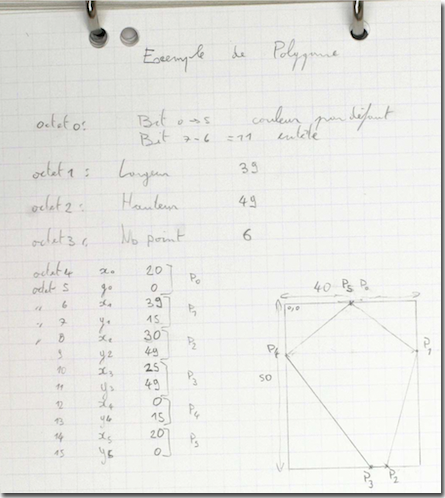 Exemple de Polygone
octet 0: Bit 0→5 couleur par défaut
Bit 7-6 = 11 entête
octet 1 : Largeur 39
octet 2 : Hauteur 49
octet 3 : Nb point 6
octet 4 x0 20
octet 5 y0 0 P0
" 6 x1 39
" 7 y1 15 P1
" 8 x2 30
9 y2 49 P2
10 x3 25
11 y3 49 P3
12 x4 0
13 y4 15 P4
14 x5 20
15 y5 0 P5
40 P5 P0
0,0
P4 P1
50
P3 P2